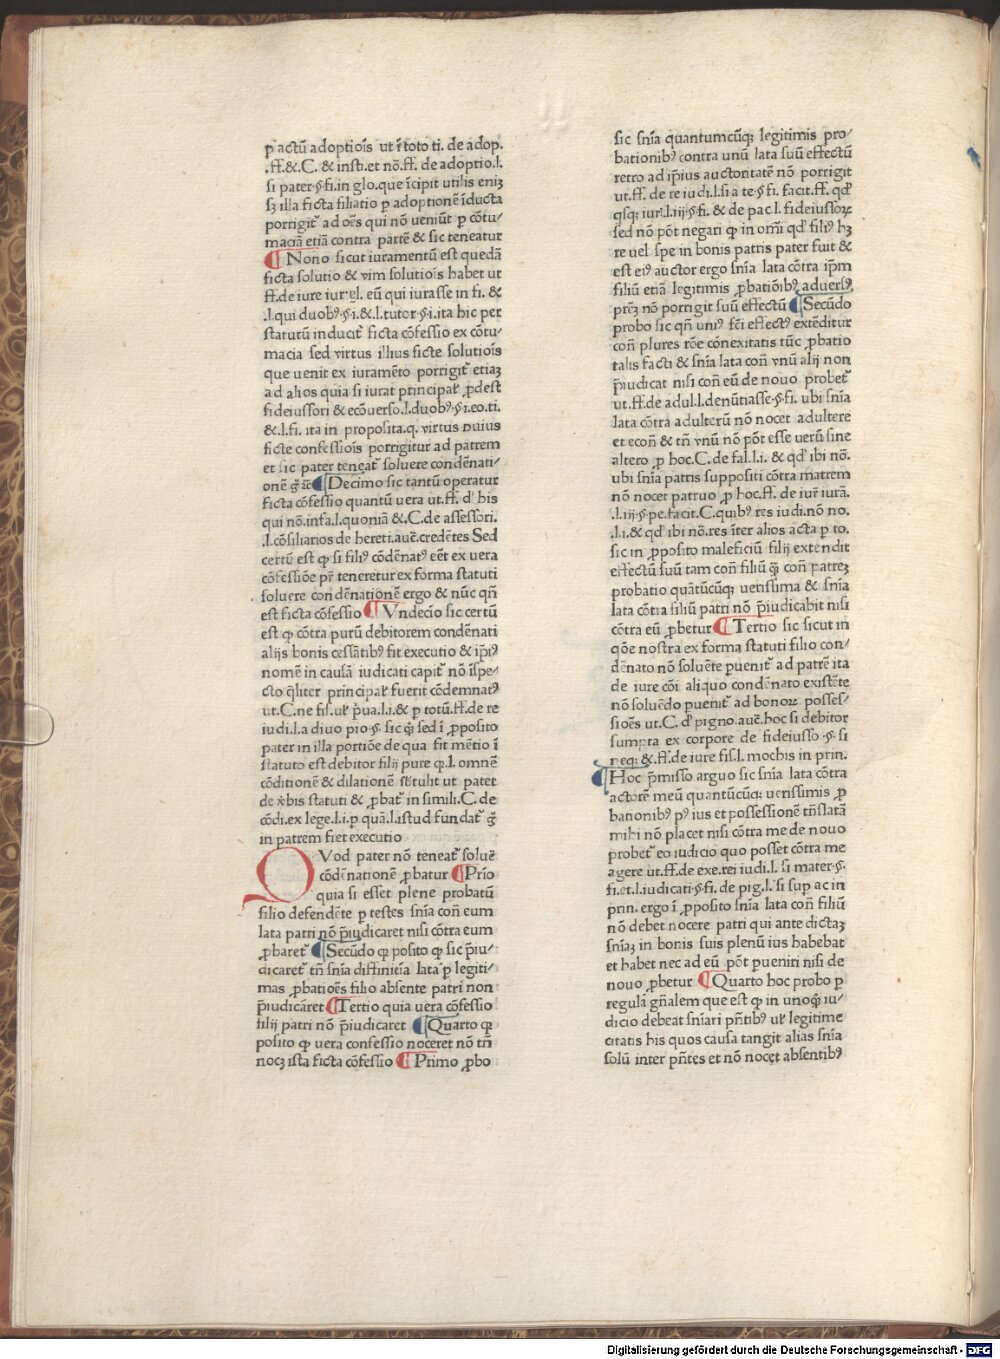 ꝑ actū adoptiōis ut ī toto ti. de adop.
.ff.&.C. & insti.et nō.ff. de adoptio.l.
si pater.§.fi.in glo.que īcipit utilis eniꝫ
sꝫ illa ficta filiatio ꝑ adoptionē īducta
porrigit᷑ ad oēs qui nō veniūt ꝑ cōtu⸗
maciā etiā contra partē & sic teneatur
¶ Nono sicut iuramentū est quedā
ficta solutio & vim solutiōis habet ut
ff.de iure iur̄.el. eū qui iurasse in fi. &
.l.qui duobꝰ.§.i.&.l.tutor.§.i.ita hic per
statutū inducit᷑ ficta cōfessio ex cōtu⸗
macia sed virtus illius ficte solutiōis
que venit ex iuramēto porrigit᷑ etiaꝫ
ad alios quia si iurat principał ꝓdest
fideiussori & ecōuerso.l.duobꝰ.§.i.eo.ti.
&.l.fi. ita in proposita.q. virtus huius
ficte confessiōis porrigitur ad patrem
et sic pater teneat᷑ soluere condēnati⸗
onē g̊ ⁊c̄ ¶ Decimo sic tantū operatur
ficta cōfessio quantū uera ut.ff. d̕ his
qui nō.infa.l.quoniā &.C.de assessori.
.l.cōsiliarios de hereti.auc̄.credētes Sed
certū est ꝙ si filiꝰ cōdēnatꝰ eēt ex uera
cōfessiōe pr̄ teneretur ex forma statuti
soluere condēnationē ergo & nūc qn̄
est ficta cōfessio ¶ Vndecio sic certū
est ꝙ cōtra purū debitorem condēnati
alijs bonis cessātibꝰ fit executio & ip̄iꝰ
nomē in causā iudicati capit᷑ nō īspe⸗
cto q̄liter principał fuerit cōdemnatꝰ
ut.C.ne fis.uł p̄ua.l.i.& ꝑ totū.ff.de re
iudi.l.a diuo pio.§. sic q̄ sed ī ꝓposito
pater in illa portiōe de qua fit mētio ī
statuto est debitor filij pure ꝙ.l. omnē
cōditionē & dilationē sustulit ut patet
de v̄bis statuti & ꝓbat᷑ in simili.C. de
cōdi.ex lege.l.i.ꝑ quā.l.istud fundat᷑ g̊
in patrem fiet executio
QVod pater nō teneat᷑ soluē
cōdēnationē ꝓbatur ¶ Prīo
quia si esset plene probatū
filio defendēte ꝑ testes snīa con̄ eum
lata patri nō p̄iudicaret nisi cōtra eum
ꝓbaret᷑ ¶ Secūdo ꝙ posito ꝙ sic p̄iu⸗
dicaret᷑ tn̄ snīa diffinitīa lata ꝑ legiti⸗
mas ꝓbatiōes filio absente patri non
p̄iudicāret ¶ Tertio quia uera cōfessio
filij patri nō p̄iudicaret ¶ Quarto ꝙ
posito ꝙ uera confessio noceret nō tn̄
nocꝫ ista ficta cōfessio ¶ Primo ꝓbo
sic snīa quantumcūqꝫ legitimis pro⸗
bationibꝰ contra unū lata suū effectū
retro ad ip̄ius auctoritatē nō porrigit
ut.ff. de re iudi.l.si a te.§.fi. facit.ff. qd̕
qsqꝫ iur̄.l.iij.§.fi. & de pac.l. fideiussoꝝ
sed nō pōt negari ꝙ in om̄i qd̕ filiꝰ hꝫ
re uel spe in bonis patris pater fuit &
est eiꝰ auctor ergo snīa lata cōtra ip̄m
filiū etiā legitimis ꝓbatiōibꝰ aduersꝰ
prēꝫ nō porrigit suū effectū ¶ Secūdo
probo sic qn̄ uniꝰ fc̄i effectꝰ extēditur
con̄ plures rōe cōnexitatis tūc ꝓbatio
talis facti & snīa lata con̄ vnū alij non
p̄iudicat nisi con̄ eū de nouo probet᷑
ut.ff.de adul.l.denūtiasse.§.fi. ubi snīa
lata cōtra adulterū nō nocet adultere
et econ̄ & tn̄ vnū nō pōt esse uerū sine
altero ꝑ hoc.C.de fal.l.i. & qd̕ ibi nō.
ubi snīa patris suppositi cōtra matrem
nō nocet patruo ꝑ hoc.ff. de iur̄ iurā.
.l.iij.§.pe.facit.C.quibꝰ res iudi.nō no.
.l.i.& qd̕ ibi nō.res īter alios acta ꝑ to.
sic in ꝓposito maleficiū filij extendit
effectū suū tam con̄ filiū q̄ȝ con̄ patreꝫ
probatio quātūcūqꝫ uerissima & snīa
lata cōtra filiū patri nō p̄iudicabit nisi
cōtra eū ꝓbetur ¶ Tertio sic sicut in
qōe nostra ex forma statuti filio con⸗
dēnato nō soluēte ꝑuenit᷑ ad patrē ita
de iure cōi aliquo condēnato existēte
nō soluēdo ꝑuenit᷑ ad bonoꝝ posses⸗
siōes ut.C. d̕ pigno.auc̄.hoc si debitor
sumpta ex corpore de fideiusso.§.si
neqꝫ &.ff.de iure fis.l. mochis in prin.
¶ Hoc p̄misso arguo sic snīa lata cōtra
actorē meū quantūcūqꝫ uerissimis ꝓ
bationibꝰ pꝰ ius et possessionē tn̄slatā
mihi nō placet nisi cōtra me de nouo
probet᷑ eo iudicio quo posset cōtra me
agere ut.ff.de exe.rei iudi.l. si mater.§.
fi.et.l.iudicati.§.fi. de pig.l. si sup ac in
prin. ergo ī ꝓposito snīa lata con̄ filiū
nō debet nocere patri qui ante dictaꝫ
snīaꝫ in bonis suis plenū ius habebat
et habet nec ad eū pōt ꝑueniri nisi de
nouo ꝓbetur ¶ Quarto hoc probo ꝑ
regulā gn̄alem que est ꝙ in unoq̊ȝ iu⸗
dicio debeat snīari pn̄tibꝰ uł legitime
citatis his quos causa tangit alias snīa
solū inter pn̄tes et nō nocet absentibꝰ
Digitalisierung gefördert durch die Deutsche Forschungsgemeinschaft - DFG